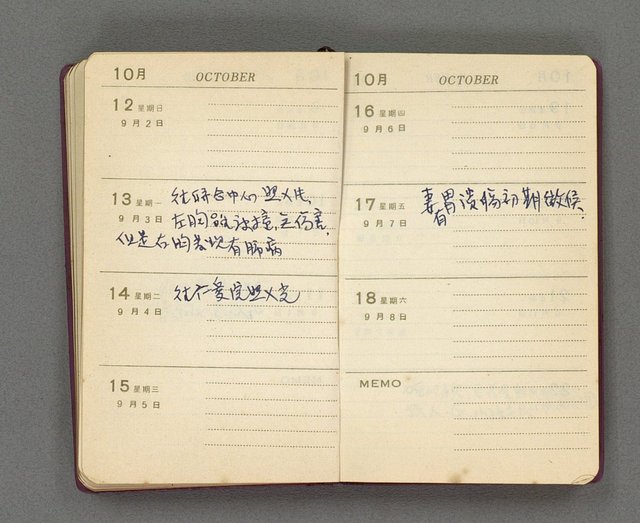 10月 OCTOBER
12 星期日
9月2日
13 星期一
9月3日
往 合中心照X光,
左胸 被撞,无伤害,
但是右胸 有肺病
14 星期二
9月4日
往仁爱院照X光
15 星期三
9月5日
10月 OCTOBER
16 星期四
9月6日
17 星期五
9月7日
妻胃溃疡初期徵候
有
18 星期六
9月8日
MEMO